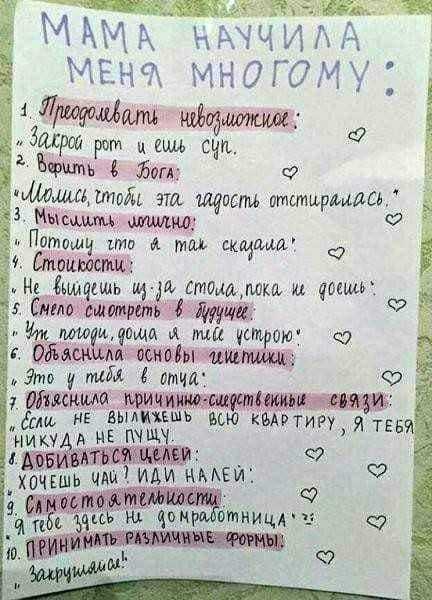 МАМА НАУЧИЛА
МЕНЯ МНОГОМУ:
1. Преодолевать невозможное:
"Закрой рот и ешь суп.
2. Верить в Бога:
"Молись, чтобы эта гадость отстиралась."
3. Мыслить логично:
"Потому что я так сказала"
4. Стойкости:
"Не выйдешь из-за стола, пока не доешь"
5. Смело смотреть в будущее:
"Уж погоди, дома я тебе устрою"
6. Объяснила основы генетики:
"Это у тебя в отца"
7. Объяснила причинно-следственные связи:
"Если не вылижешь всю квартиру, я тебя
никуда не пущу.
8. Добиваться целей:
"хочешь чай? иди налей"
9. Самостоятельности:
"я тебе здесь не домработница"
10. Принимать различные формы:
"Закругляйся!"